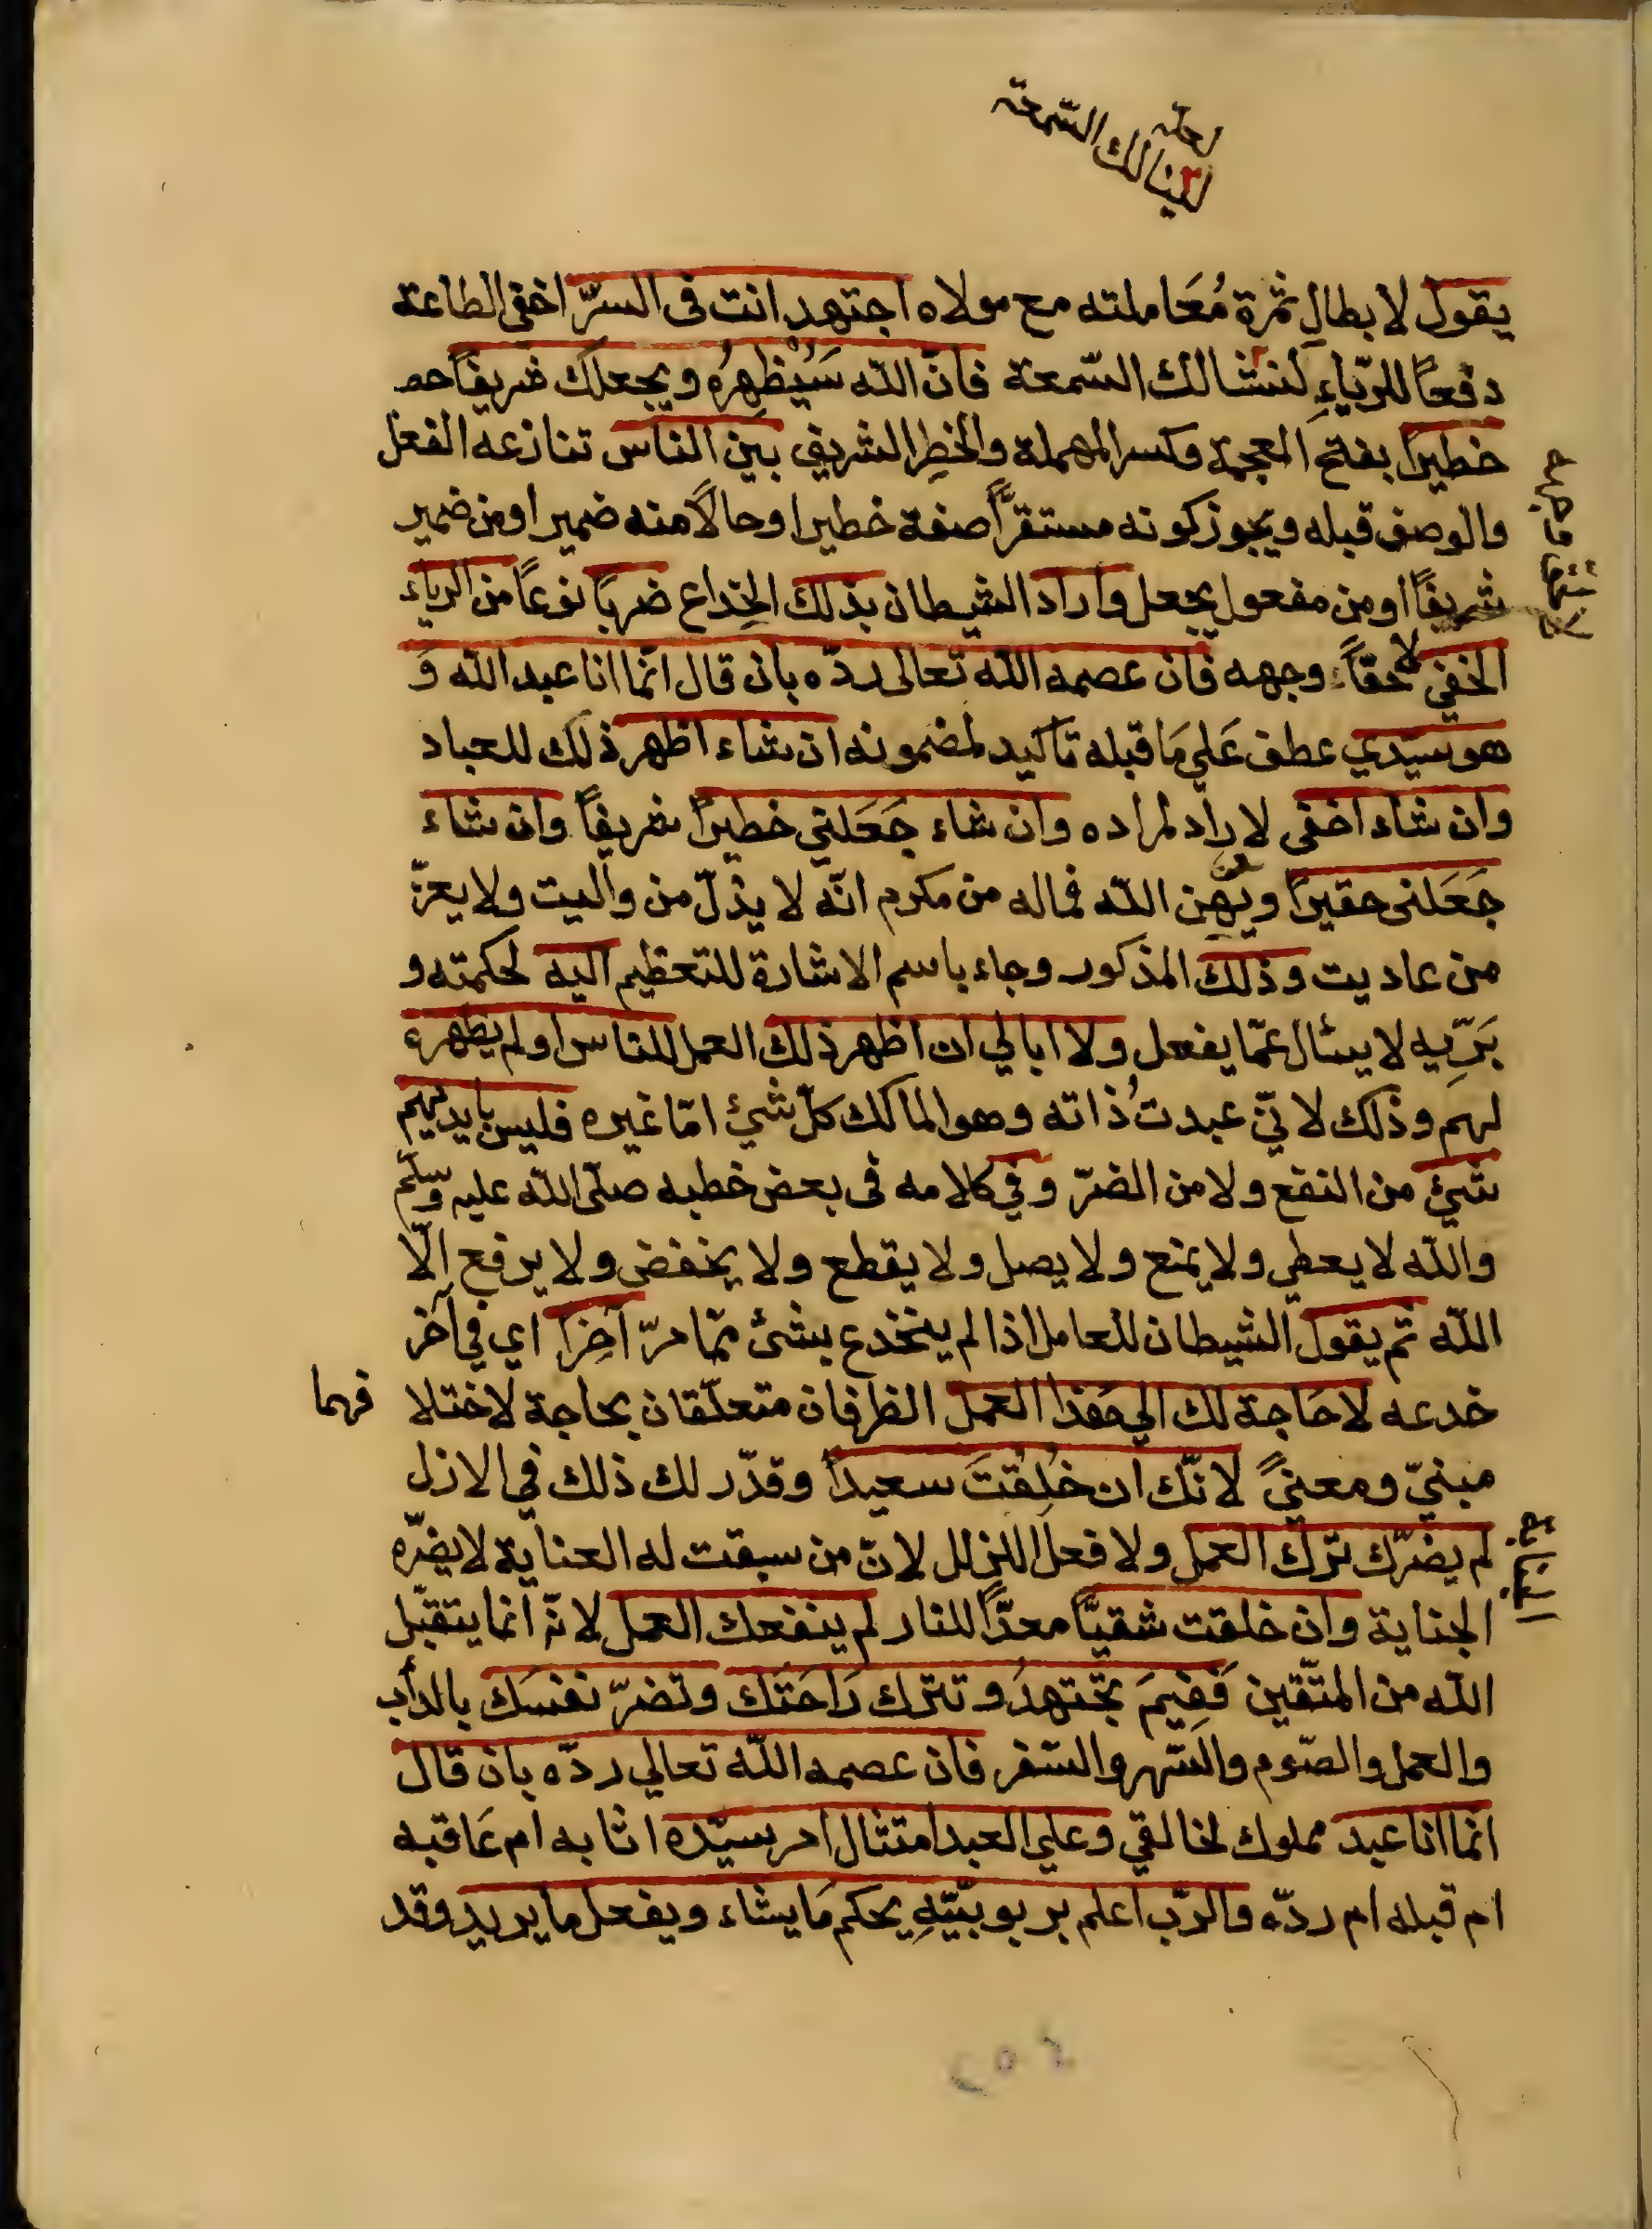 لعله
لينالك السمعة
يقول لابطالِ ثمرة مُعَاملته مع مولاه اجتهد انت فى السرّ اخفى الطاعة
دفعًا للرّياءِ لننشالك السّمعة فانّ الله سَيُظهِرُه ويجعلك شريفاً
خطيرًا بفتح العجمة وكسر المهملة والخطِر الشريف بين الناس تنازعه الفعل
والوصف قبله ويجوز كونه مستقرًّا صفة خطيرا وحالاً منه ضميرا ومن ضمير
شريفاً او من مفعول يجعل واراد الشيطان بذلك الخِداع ضربًا نوعاً من الرياء
الخفي وجهه فان عصمه الله تعالى ردّه بان قال انّما انا عبد الله وَ
هو سيّدي عطف عَلي مَا قبله تاكيد لمضمونه ان شاء اظهر ذلك للعباد
وان شاء اخفى لا رادّ لمراده وان شاء جَعَلني خطيراً شريفاً وان شاء
جَعَلنى حقيرًا ويُهِن الله فما له من مكرم انّه لا يذلّ من واليت ولا يعزّ
من عاديت وذلك المذكور وجاء باسم الاشارة للتعظيم اليه لحكمته و
بَرِّيه لا يسئال عمّا يفعل ولا ابالي ان اظهر ذلك العمل للناس اولم يظهره
لهم وذلك لانّي عبدتُ ذاته وهو المالك كلّ شيئ امّا غيره فليس بايديهم
شيئ من النفع ولا من الضرّ وفي كلامه فى بعض خطبه صلّى الله عليه وسلّم
والله لا يعطي ولا يمنع ولا يصل ولا يقطع ولا يخفض ولا يرفع الّا
الله ثم يقول الشيطان للعامل اذا لم ينخدع بشئ ممّا مرّ آخِراً اي في آخر
خدعه لا حَاجة لك الي هَذا العمل الظرفان متعلّقان بحاجة لاختلافهما
مبنيّ ومعنيً لانّك ان خُلِقتَ سعيداً وقدّر لك ذلك في الازل
لم يضرّك ترك العمل ولا فعل الزلل لانّ من سبقت له العناية لا يضرّه
الجناية وان خلقت شقيًّا معدًّا للنار لم ينفعك العمل لانّه انما يتقبّل
الله من المتّقين فَفِيمَ تجتهدُ وتترك رَاحَتَك وتضرّ نفسَك بالدأب
والعمل والصّوم والسّهر والسّفر فان عصمه الله تعالي ردّه بان قال
انما انا عبد مملوك لخالقي وعلي العبد امتثال امر سيّده اثابه ام عَاقبه
ام قبله ام ردّه والرّب اعلم بربوبيّتهِ يحكم مَا يشاء ويفعل ما يريد وقد